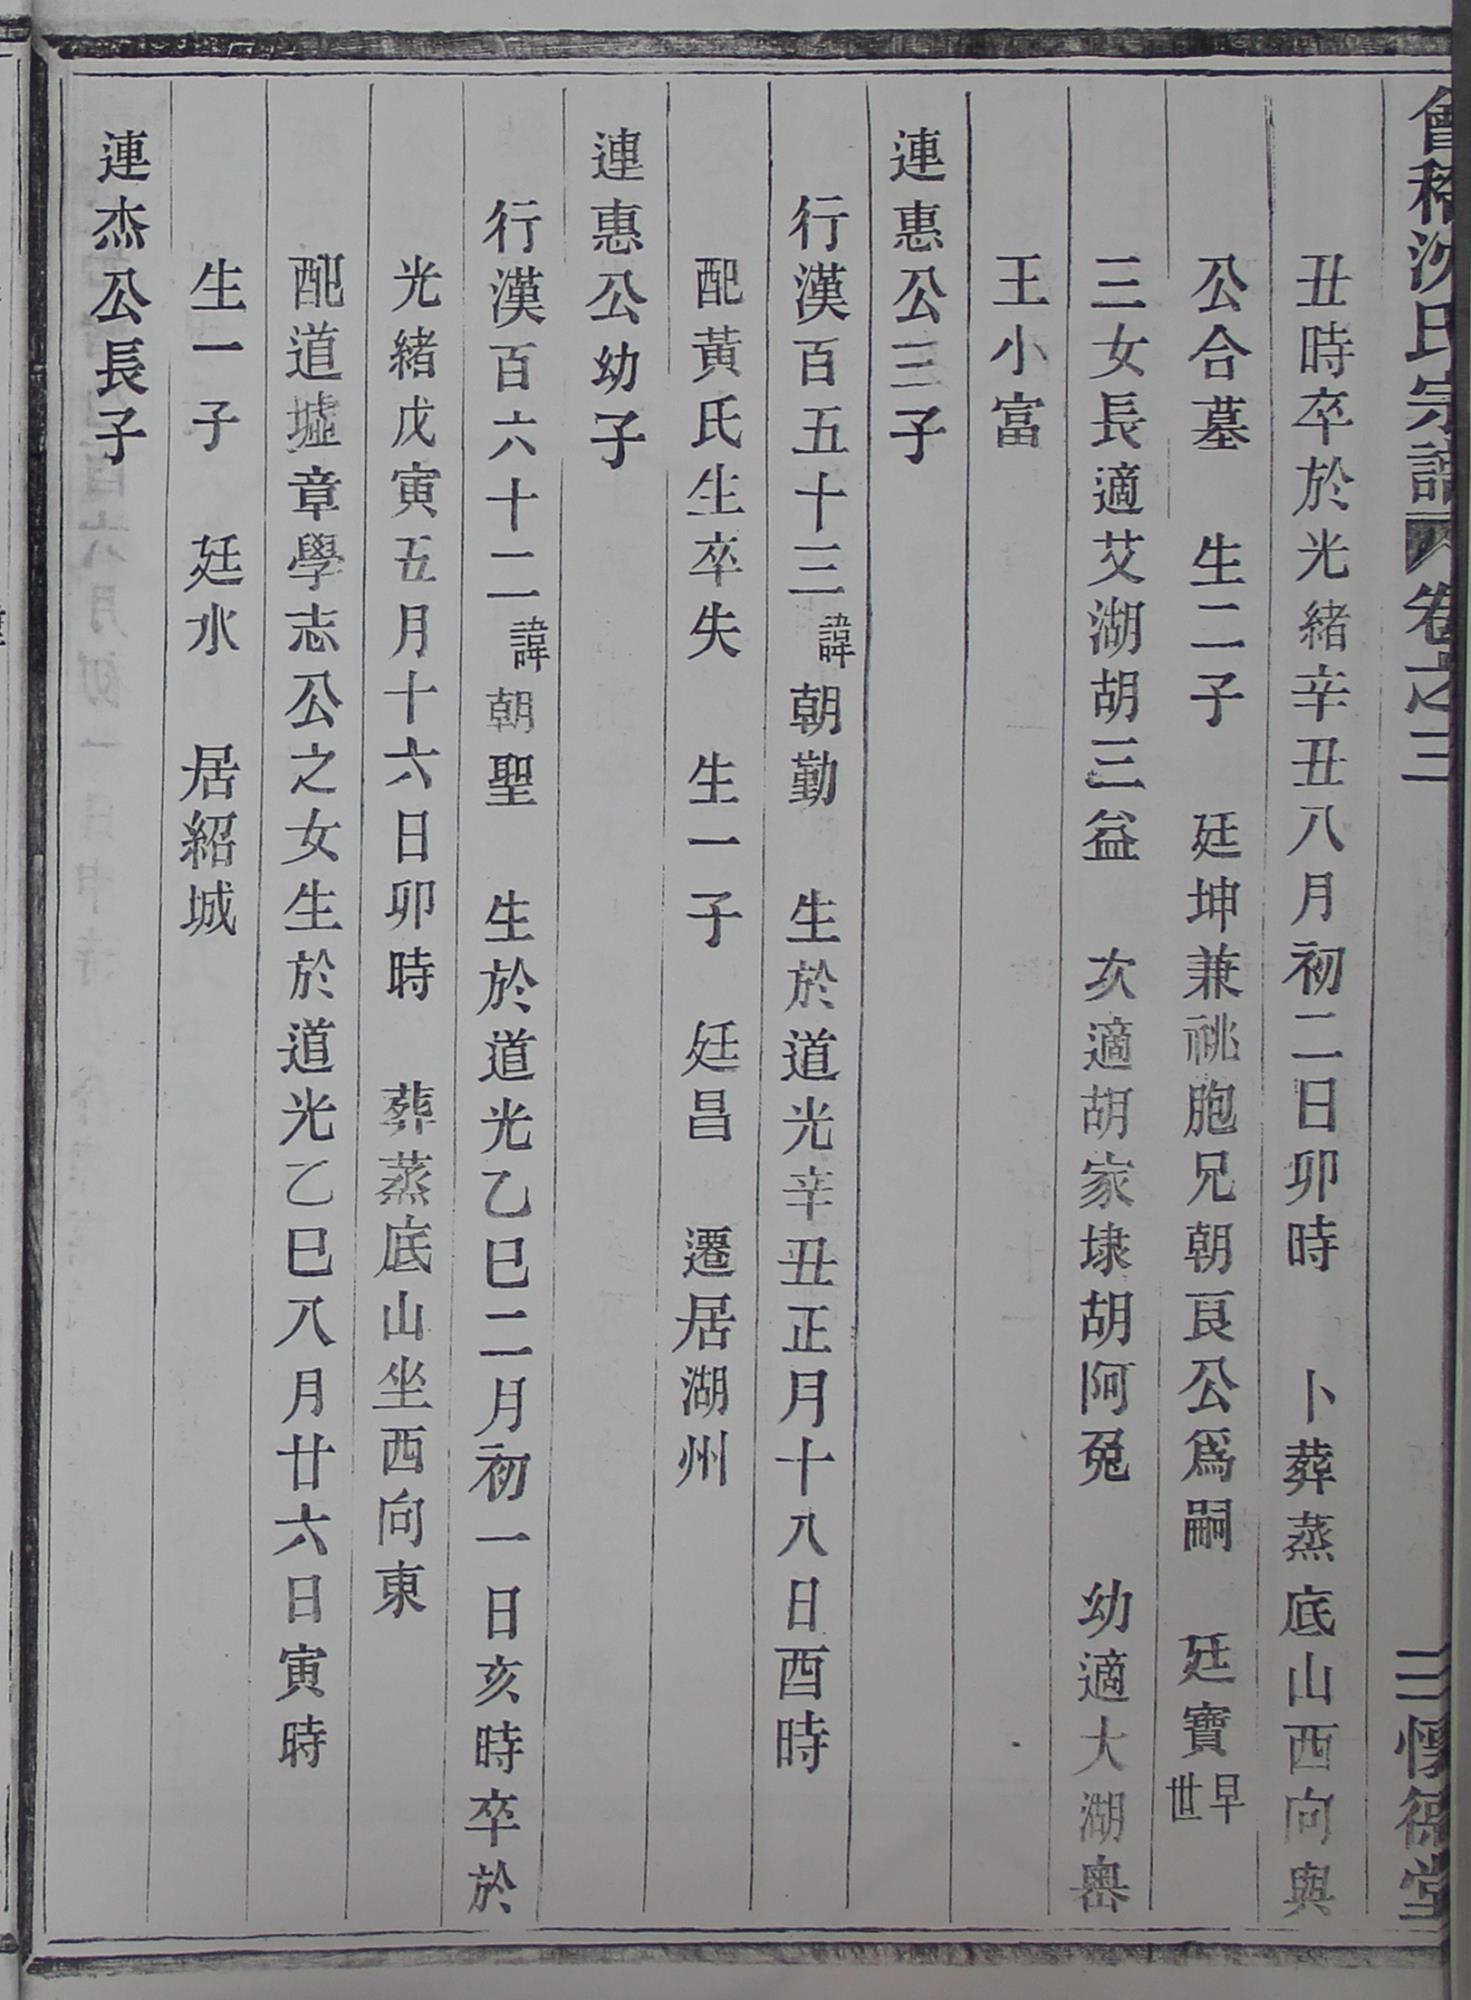 會稽沈氏宗譜 卷之三 三 懷德堂
丑時卒於光緒辛丑八月初二日卯時 卜葬蒸底山西向與
公合墓 生二子 廷坤兼祧胞兄朝良公爲嗣 廷寶早世
三女長適艾湖胡三益 次適胡家埭胡阿兔 幼適大湖嶴
王小富
連惠公三子
行漢百五十三諱朝勤 生於道光辛丑正月十八日酉時
配黃氏生卒失 生一子 廷昌 遷居湖州
連惠公幼子
行漢百六十二諱朝聖 生於道光乙巳二月初一日亥時卒於
光緒戊寅五月十六日卯時 葬蒸底山坐西向東
配道墟章學志公之女生於道光乙巳八月廿六日寅時
生一子 廷水 居紹城
連杰公長子